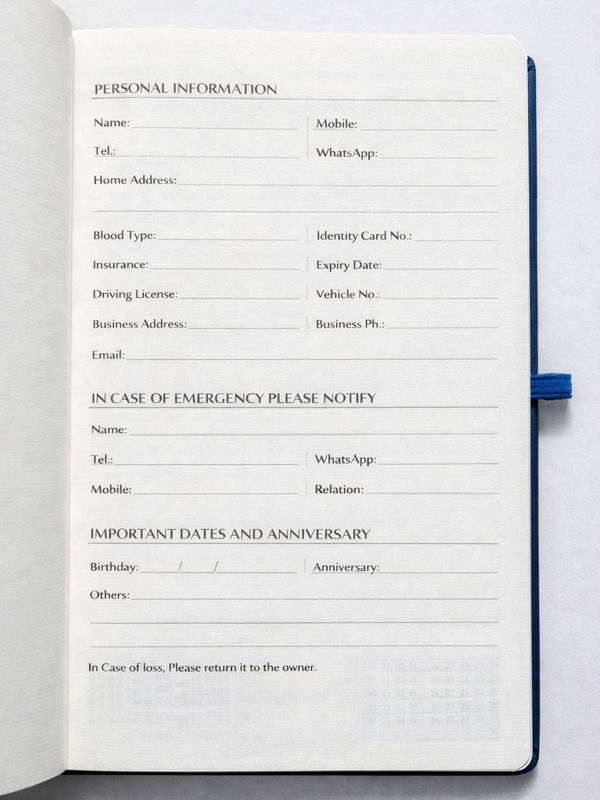 PERSONAL INFORMATION
Name: Mobile:
Tel.: WhatsApp:
Home Address:
Blood Type: Identity Card No.:
Insurance: Expiry Date:
Driving License: Vehicle No.:
Business Address: Business Ph.:
Email:
IN CASE OF EMERGENCY PLEASE NOTIFY
Name:
Tel.: WhatsApp:
Mobile: Relation:
IMPORTANT DATES AND ANNIVERSARY
Birthday: / / Anniversary:
Others:
In Case of loss, Please return it to the owner.